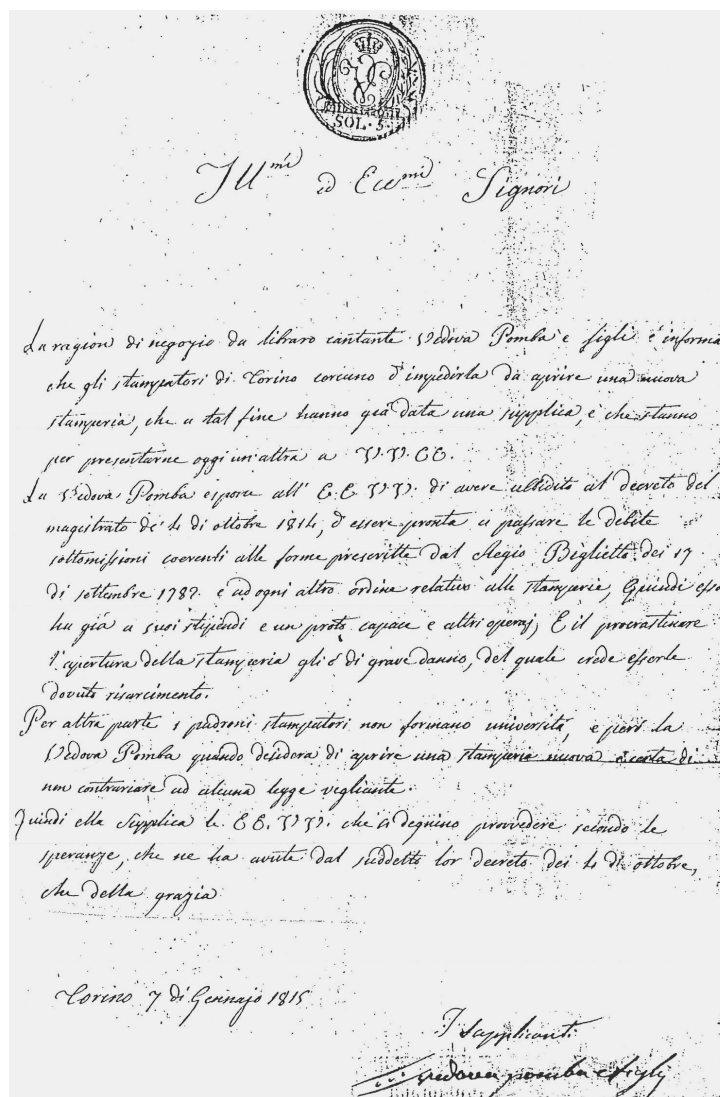 SOL. 5.
Ill.mi ed Ecc.mi Signori
La ragion di negozio da libraro cantante Vedova Pomba e figli è informa
che gli stampatori di Torino cercano d'impedirla da aprire una nuova
stamperia, che a tal fine hanno già data una supplica, e che stanno
per presentarne oggi un'altra a V.V. EE.
La Vedova Pomba espone all' E.E. V.V. di avere ubbidito al decreto del
magistrato de' 4 di ottobre 1814, d'essere pronta a passare le debite
sottomissioni coerenti alle forme prescritte dal Regio Biglietto dei 17
di settembre 1782. e ad ogni altro ordine relativo alle stamperie, Quindi essa
ha già a suoi stipendi e un proto capace e altri operaj, E il procrastinare
l'apertura della stamperia gli è di grave danno, del quale crede esserle
dovuto risarcimento.
Per altra parte i padroni stampatori non formano università, e però la
Vedova Pomba quando desidera di aprire una stamperia nuova è certa di
non contrariare ad alcuna legge vegliante.
Quindi ella Supplica le EE. VV. che si degnino provvedere secondo le
speranze, che ne ha avute dal suddetto lor decreto dei 4 di ottobre,
che della grazia
Torino 7 di Gennajo 1815
I supplicanti
vedova pomba e figlj